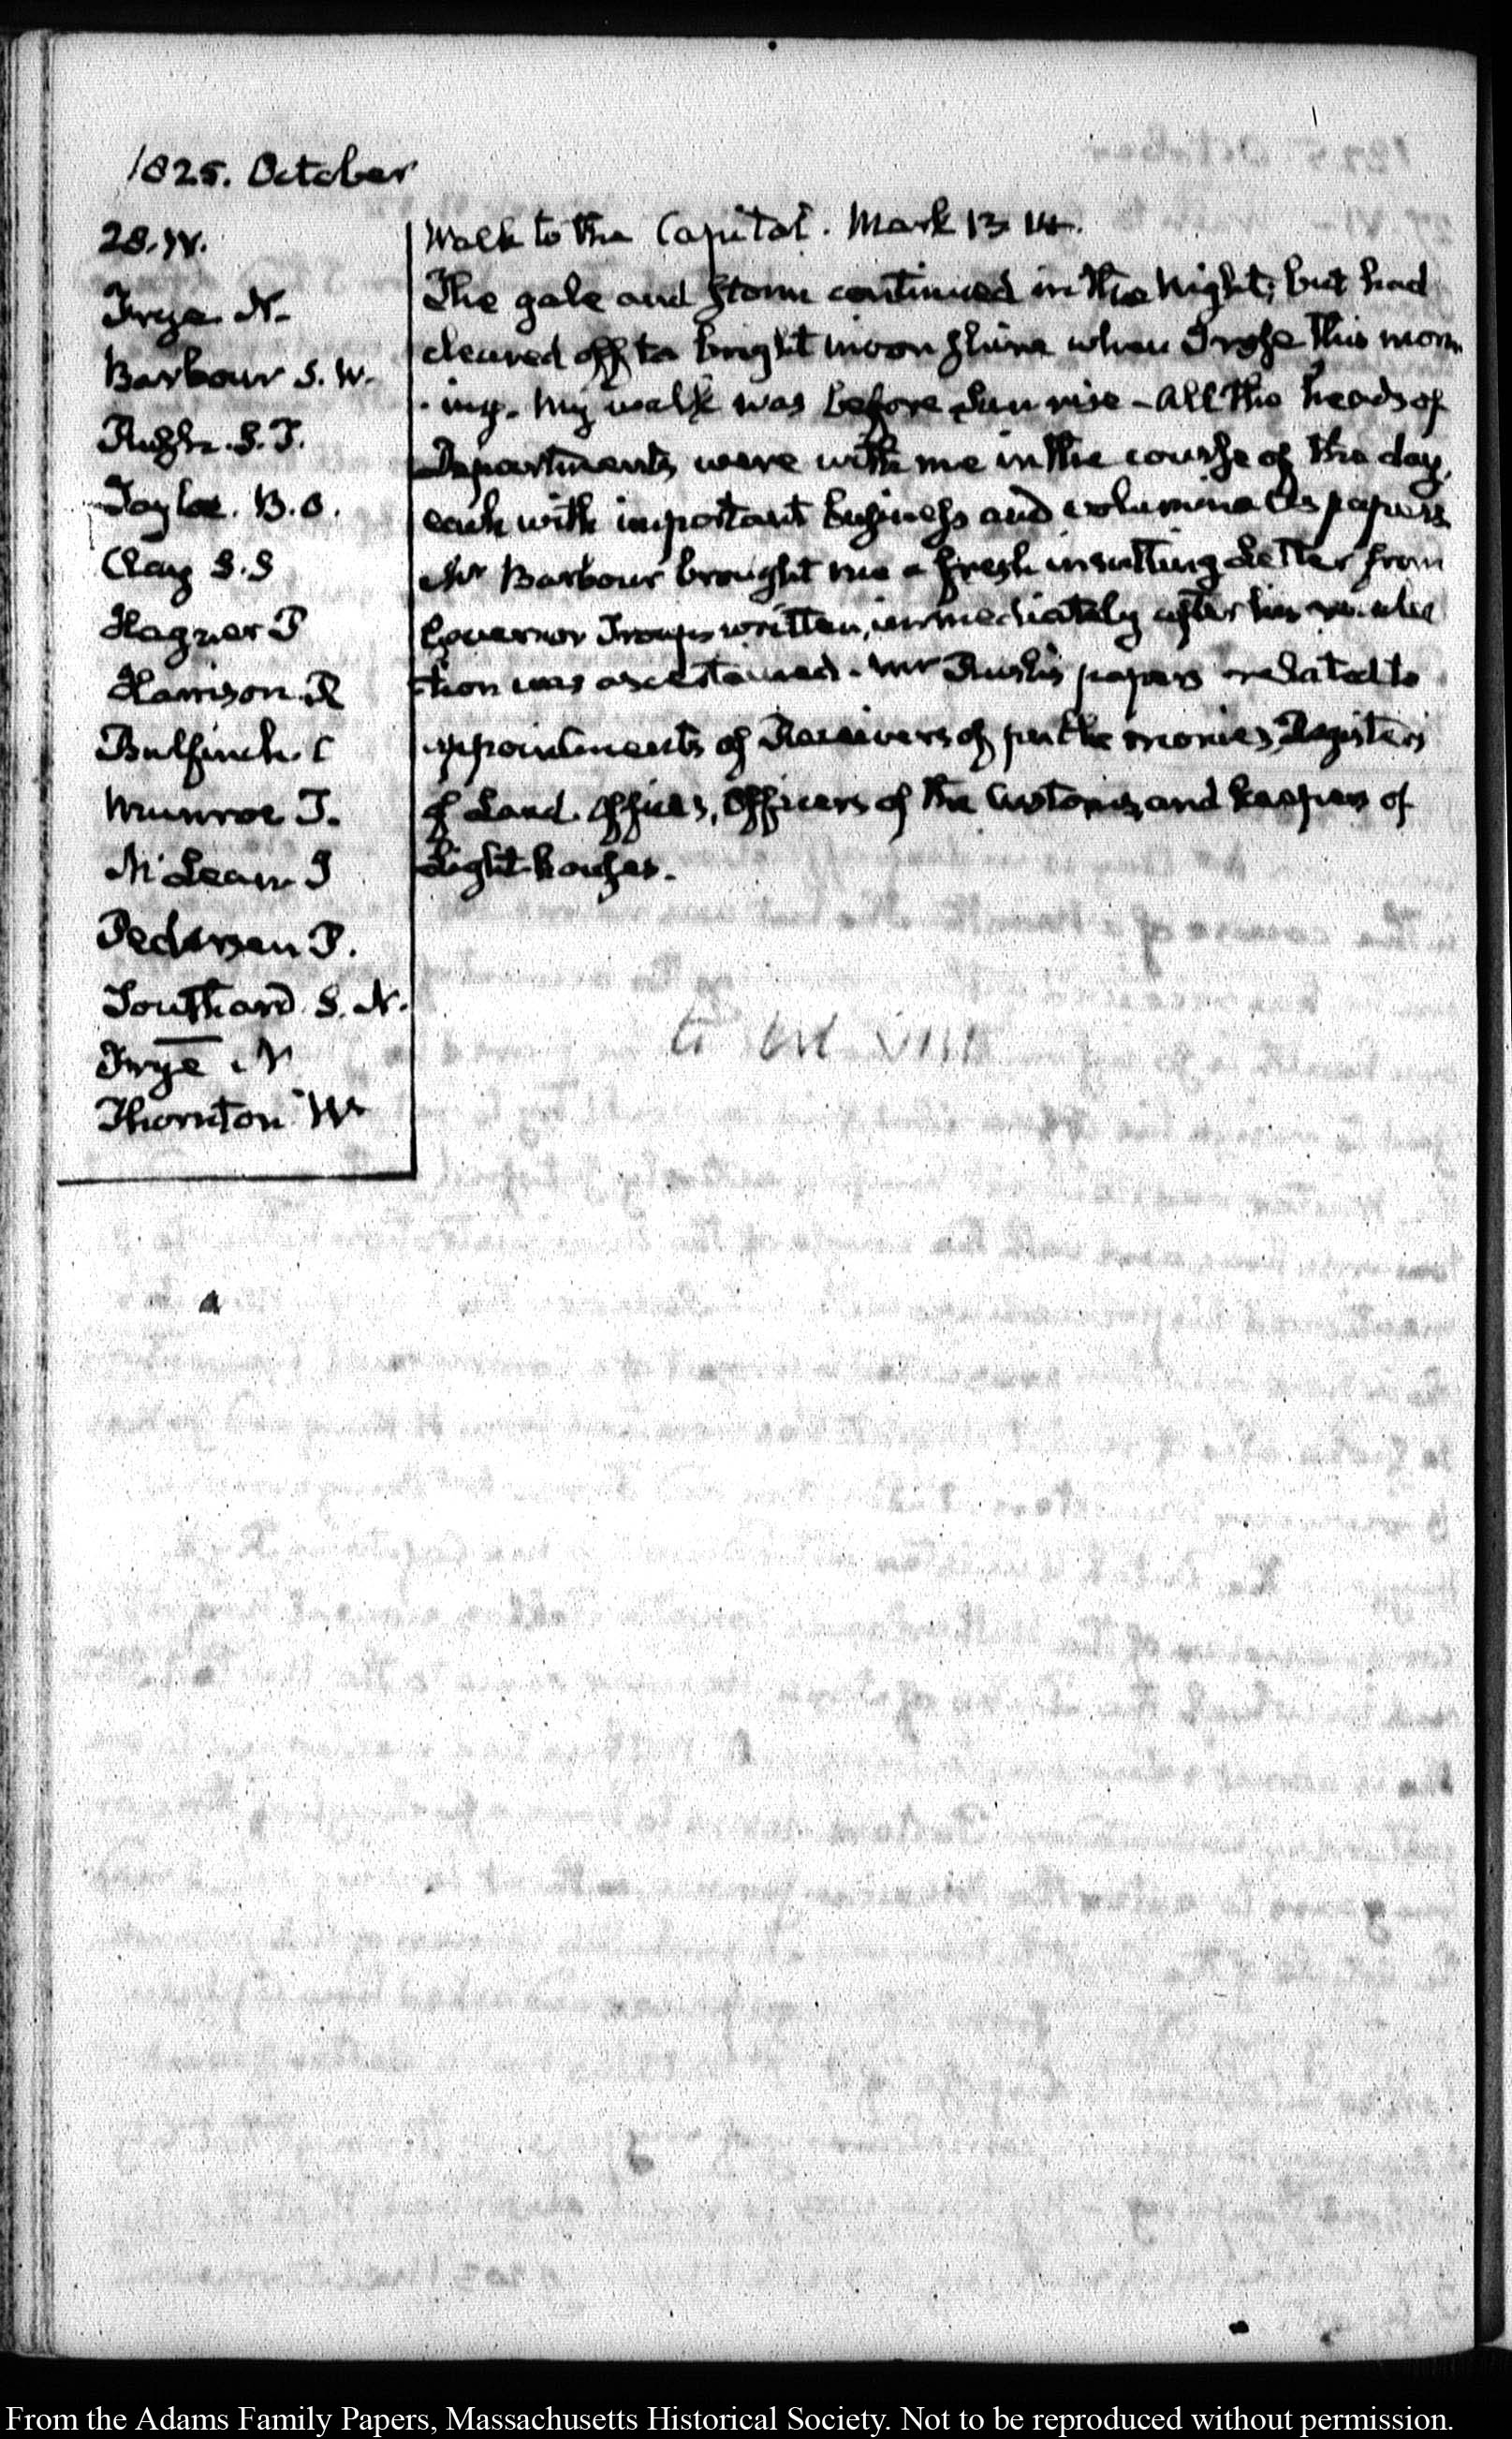 1825. October
28. IV.
Frye. N.
Barbour S. W.
Rush. S. T.
Tayloe. B. O.
Clay S. S
Hagner P
Harrison. R
Bulfinch. C
Munroe T.
McLean J
Pedersen P.
Southard S. N.
Frye N
Thornton Wm
Walk to the Capitol. Mark 13. 14.
The gale and storm continued in the Night; but had
cleared off to bright moon shine when I rose this morn
-ing. My walk was before Sun rise - All the heads of
Departments were with me in the course of the day,
each with important business and voluminous papers
Mr Barbour brought me a fresh insulting Letter from
Governor Troup written, immediately after his re-elec
tion was ascertained. Mr Rush's papers related to
appointments of Receivers of public monies, Registers
of Land Offices, Officers of the Customs, and keepers of
Light-houses.
From the Adams Family Papers, Massachusetts Historical Society. Not to be reproduced without permission.